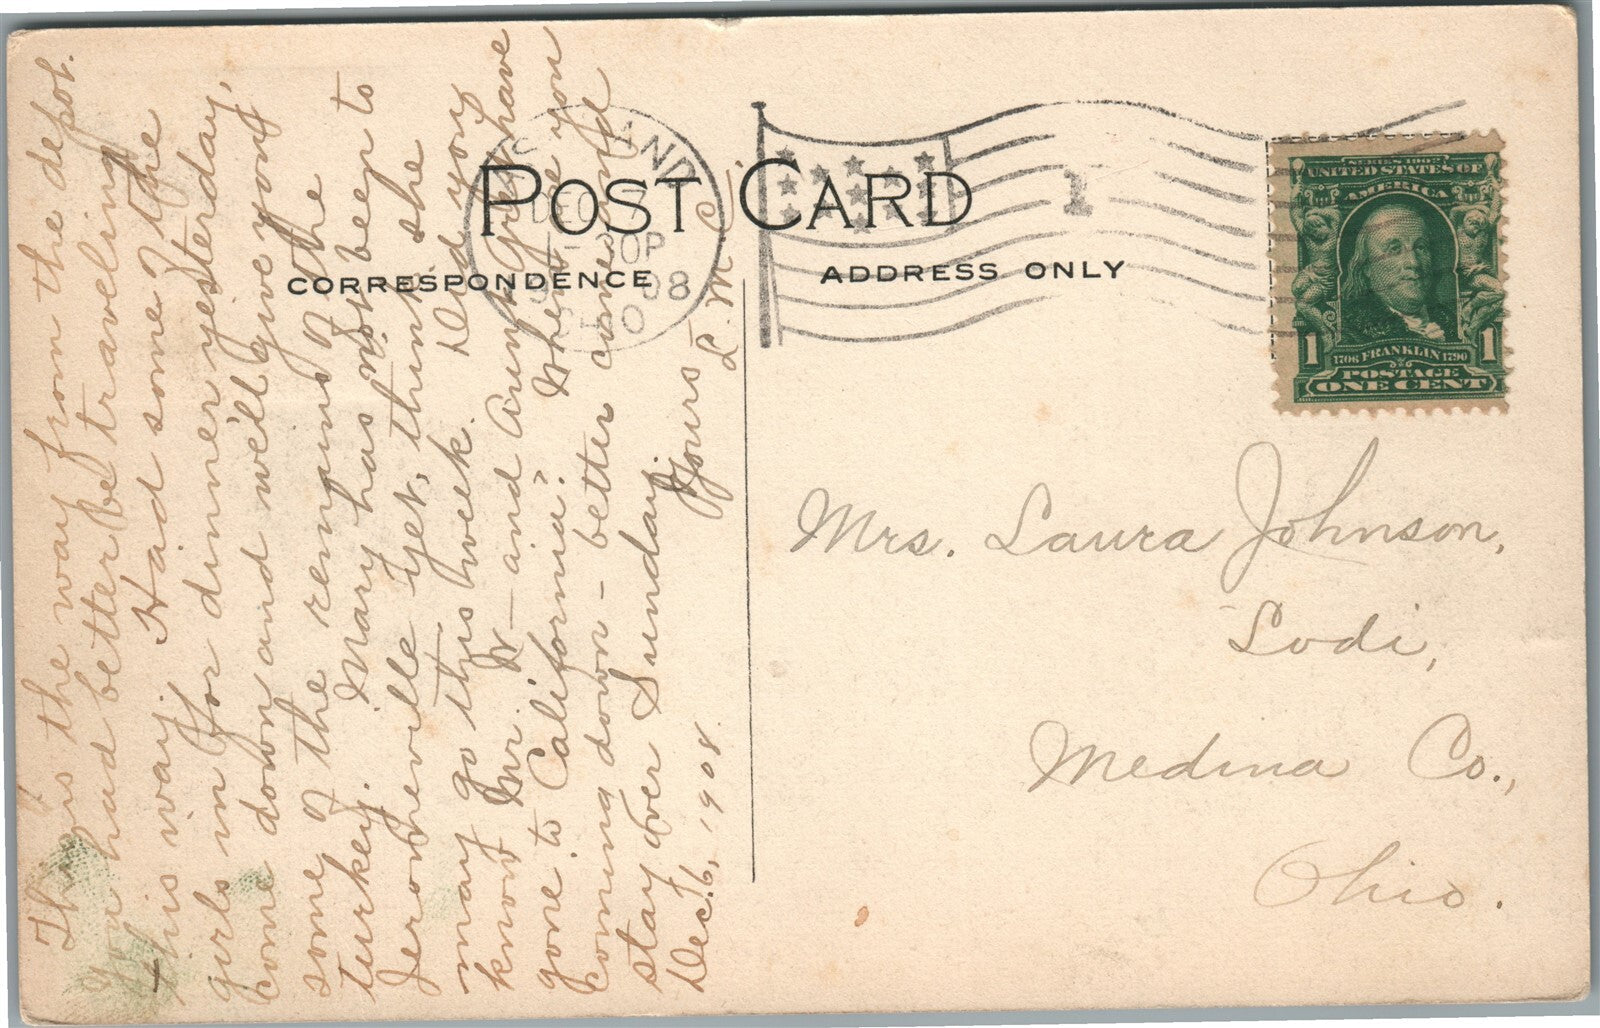 POST CARD
CORRESPONDENCE
ADDRESS ONLY
This is the way from the depot.
You had better be traveling
this way. Had some of the
girls in for dinner yesterday,
come down and we'll give you
some of the remains of the
turkey. Mary has not been to
Jeromeville yet, thinks she
may go this week. Did you
know Mr. W— and Aunt Gust have
gone to California? When are you
coming down – better come and
stay over Sunday.
Yours –
L. M. C.
Dec. 6, 1908.
DEC 7
30P
08
1
SERIES 1902
UNITED STATES OF
AMERICA
1 1
1706 FRANKLIN 1790
POSTAGE
ONE CENT
Mrs. Laura Johnson,
Lodi,
Medina Co.,
Ohio.